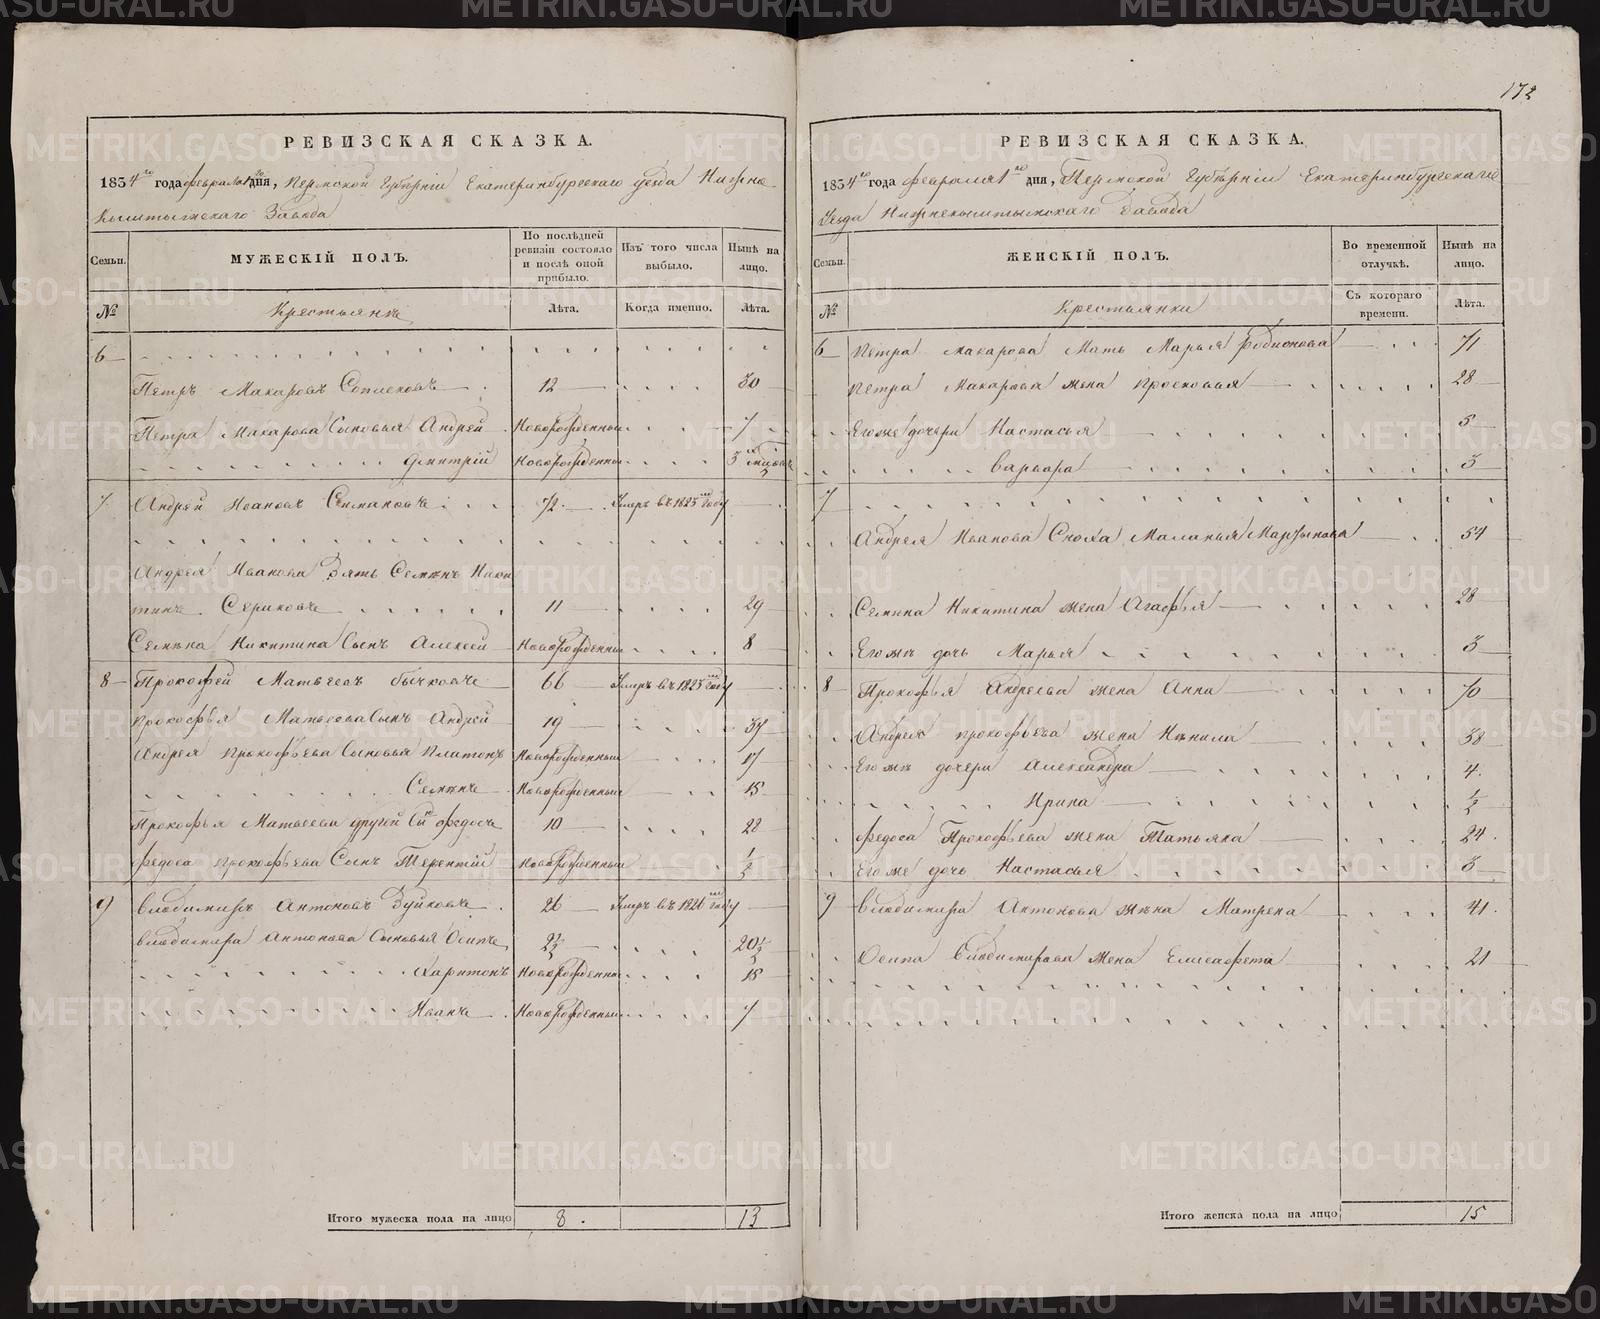 172
РЕВИЗСКАЯ СКАЗКА.
1834го года февраля 1го дня, Пермской Губерніи Екатеринбургскаго уезда Нижне
Кыштымскаго Завода
Семьи. МУЖЕСКІЙ ПОЛЪ. По послѣдней ревизіи состояло и послѣ оной прибыло. Изъ того числа выбыло. Нынѣ на лицо.
№ Крестьянъ Лѣта. Когда именно. Лѣта.
6
Петръ Макаровъ 12 30
Петра Макарова Сыновья Андрей Новорожденный 7
Дмитрій Новорожденный 3
7 Андрей Ивановъ 72 Умеръ въ 1825 году
Андрея Иванова Зять Семенъ Ники
тинъ Сериковъ 11 29
Семена Никитина Сынъ Алексей Новорожденный 8
8 Прокофей Матвеевъ Бычковъ 66 Умеръ въ 1825 году
Прокофья Матвеева Сынъ Андрей 19 37
Андрея Прокофьева Сыновья Платонъ Новорожденный 17
Семенъ Новорожденный 15
Прокофья Матвеева другой Сынъ Федосъ 10 28
Федоса Прокофьева Сынъ Терентій Новорожденный ½
9 Владимиръ Антоновъ Зуйковъ 26 Умеръ въ 1826 году
Владимира Антонова Сыновья Осипъ 2½ 20½
Харитонъ Новорожденный 15
Иванъ Новорожденный 7
Итого мужеска пола на лицо 8. 13
РЕВИЗСКАЯ СКАЗКА.
1834го года февраля 1го дня, Пермской Губѣрніи Екатеринбургскаго
Уезда Нижнекыштымскаго Завода
Семьи. ЖЕНСКІЙ ПОЛЪ. Во временной отлучкѣ. Нынѣ на лицо.
№ Крестьянки Съ котораго времени. Лѣта.
6 Петра Макарова Мать Марья Родионова 71
Петра Макарова жена Просковья 28
Его же дочери Настасья 5
Варвара 3
7
Андрея Иванова Сноха Маланья Мартынова 54
Семена Никитина жена Агафья 28
Его же дочь Марья 3
8 Прокофья Андреева жена Анна 70
Андрея Прокофьева жена Ненила 38
Его же дочери Александра 4
Ирина ½
Федоса Прокофьева жена Татьяна 24
Его же дочь Настасья 3
9 Владимира Антонова жена Матрена 41
Осипа Владимирова жена Елисафета 21
Итого женска пола на лицо 15
METRIKI.GASO-URAL.RU